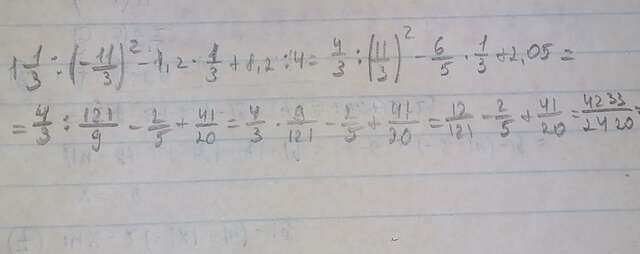 1 1/3 : (-11/3)^2 - 1,2 · 1/3 + 8,2 : 4 = 4/3 : (11/3)^2 - 6/5 · 1/3 + 2,05 =
= 4/3 : 121/9 - 2/5 + 41/20 = 4/3 · 9/121 - 2/5 + 41/20 = 12/121 - 2/5 + 41/20 = 4233/2420